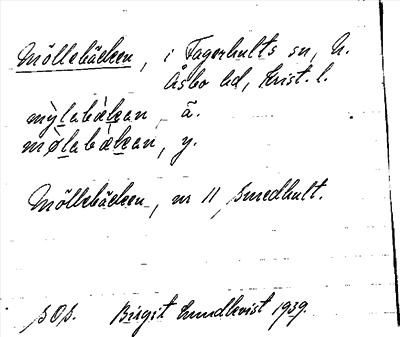 Möllebäcken, i Fagerhults sn, N.
Åsbo hd, Krist. l.
mỳlabæ̀kan, ä.
mø̀labæ̀kan, y.
Möllebäcken, nr 11, Smedhult.
SOS. Birgit Lundkvist 1939.